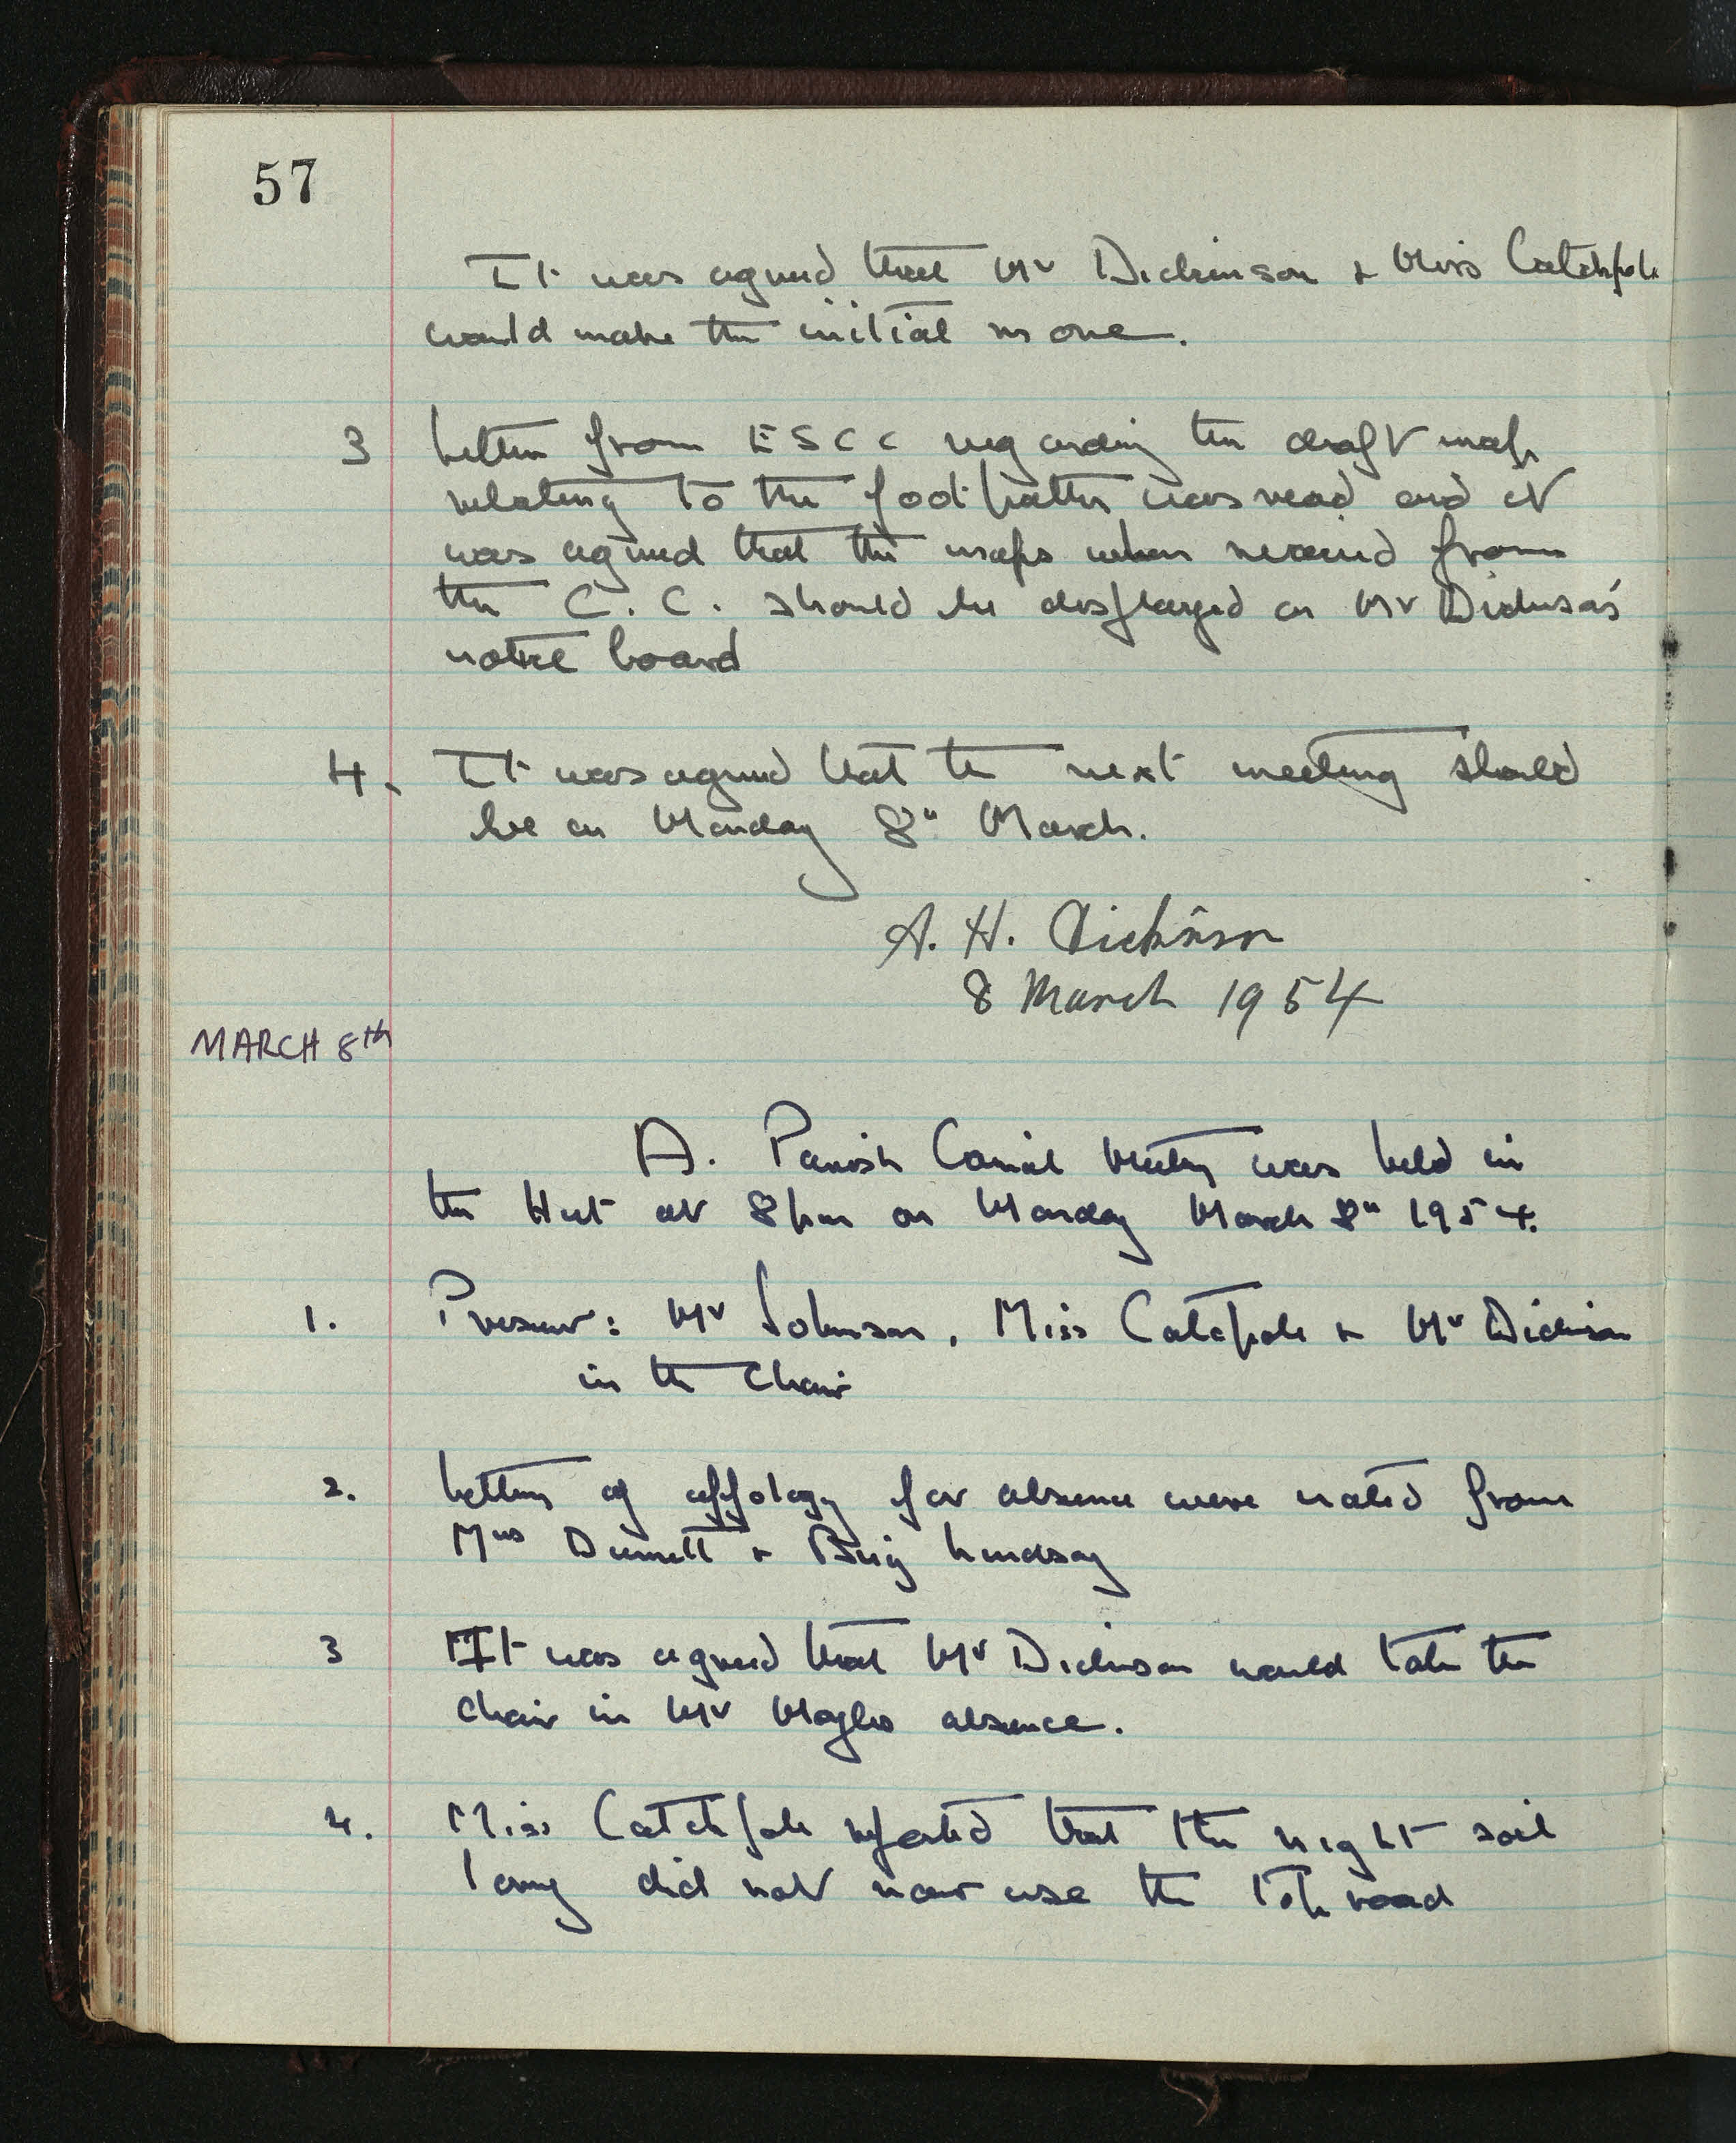 57
It was agreed that Mr Dickinson + Miss Catchpole
would make the initial move.
3 Letter from ESCC regarding the draft map
relating to the footpaths was read and it
was agreed that the maps when received from
the C. C. should be displayed on Mr Dickinson's
notice board
4. It was agreed that the next meeting should
be on Monday 8th March.
A. H. Dickinson
8 March 1954
MARCH 8th
A. Parish Council Meeting was held in
the Hut at 8pm on Monday March 8th 1954.
1. Present: Mr Johnson, Miss Catchpole + Mr Dickinson
in the Chair
2. Letters of appology for absence were noted from
Mrs + Brig Lindsay
3 It was agreed that Mr Dickinson would take the
chair in Mr absence.
4. Miss Catchpole reported that the night soil
lorry did not now use the top road